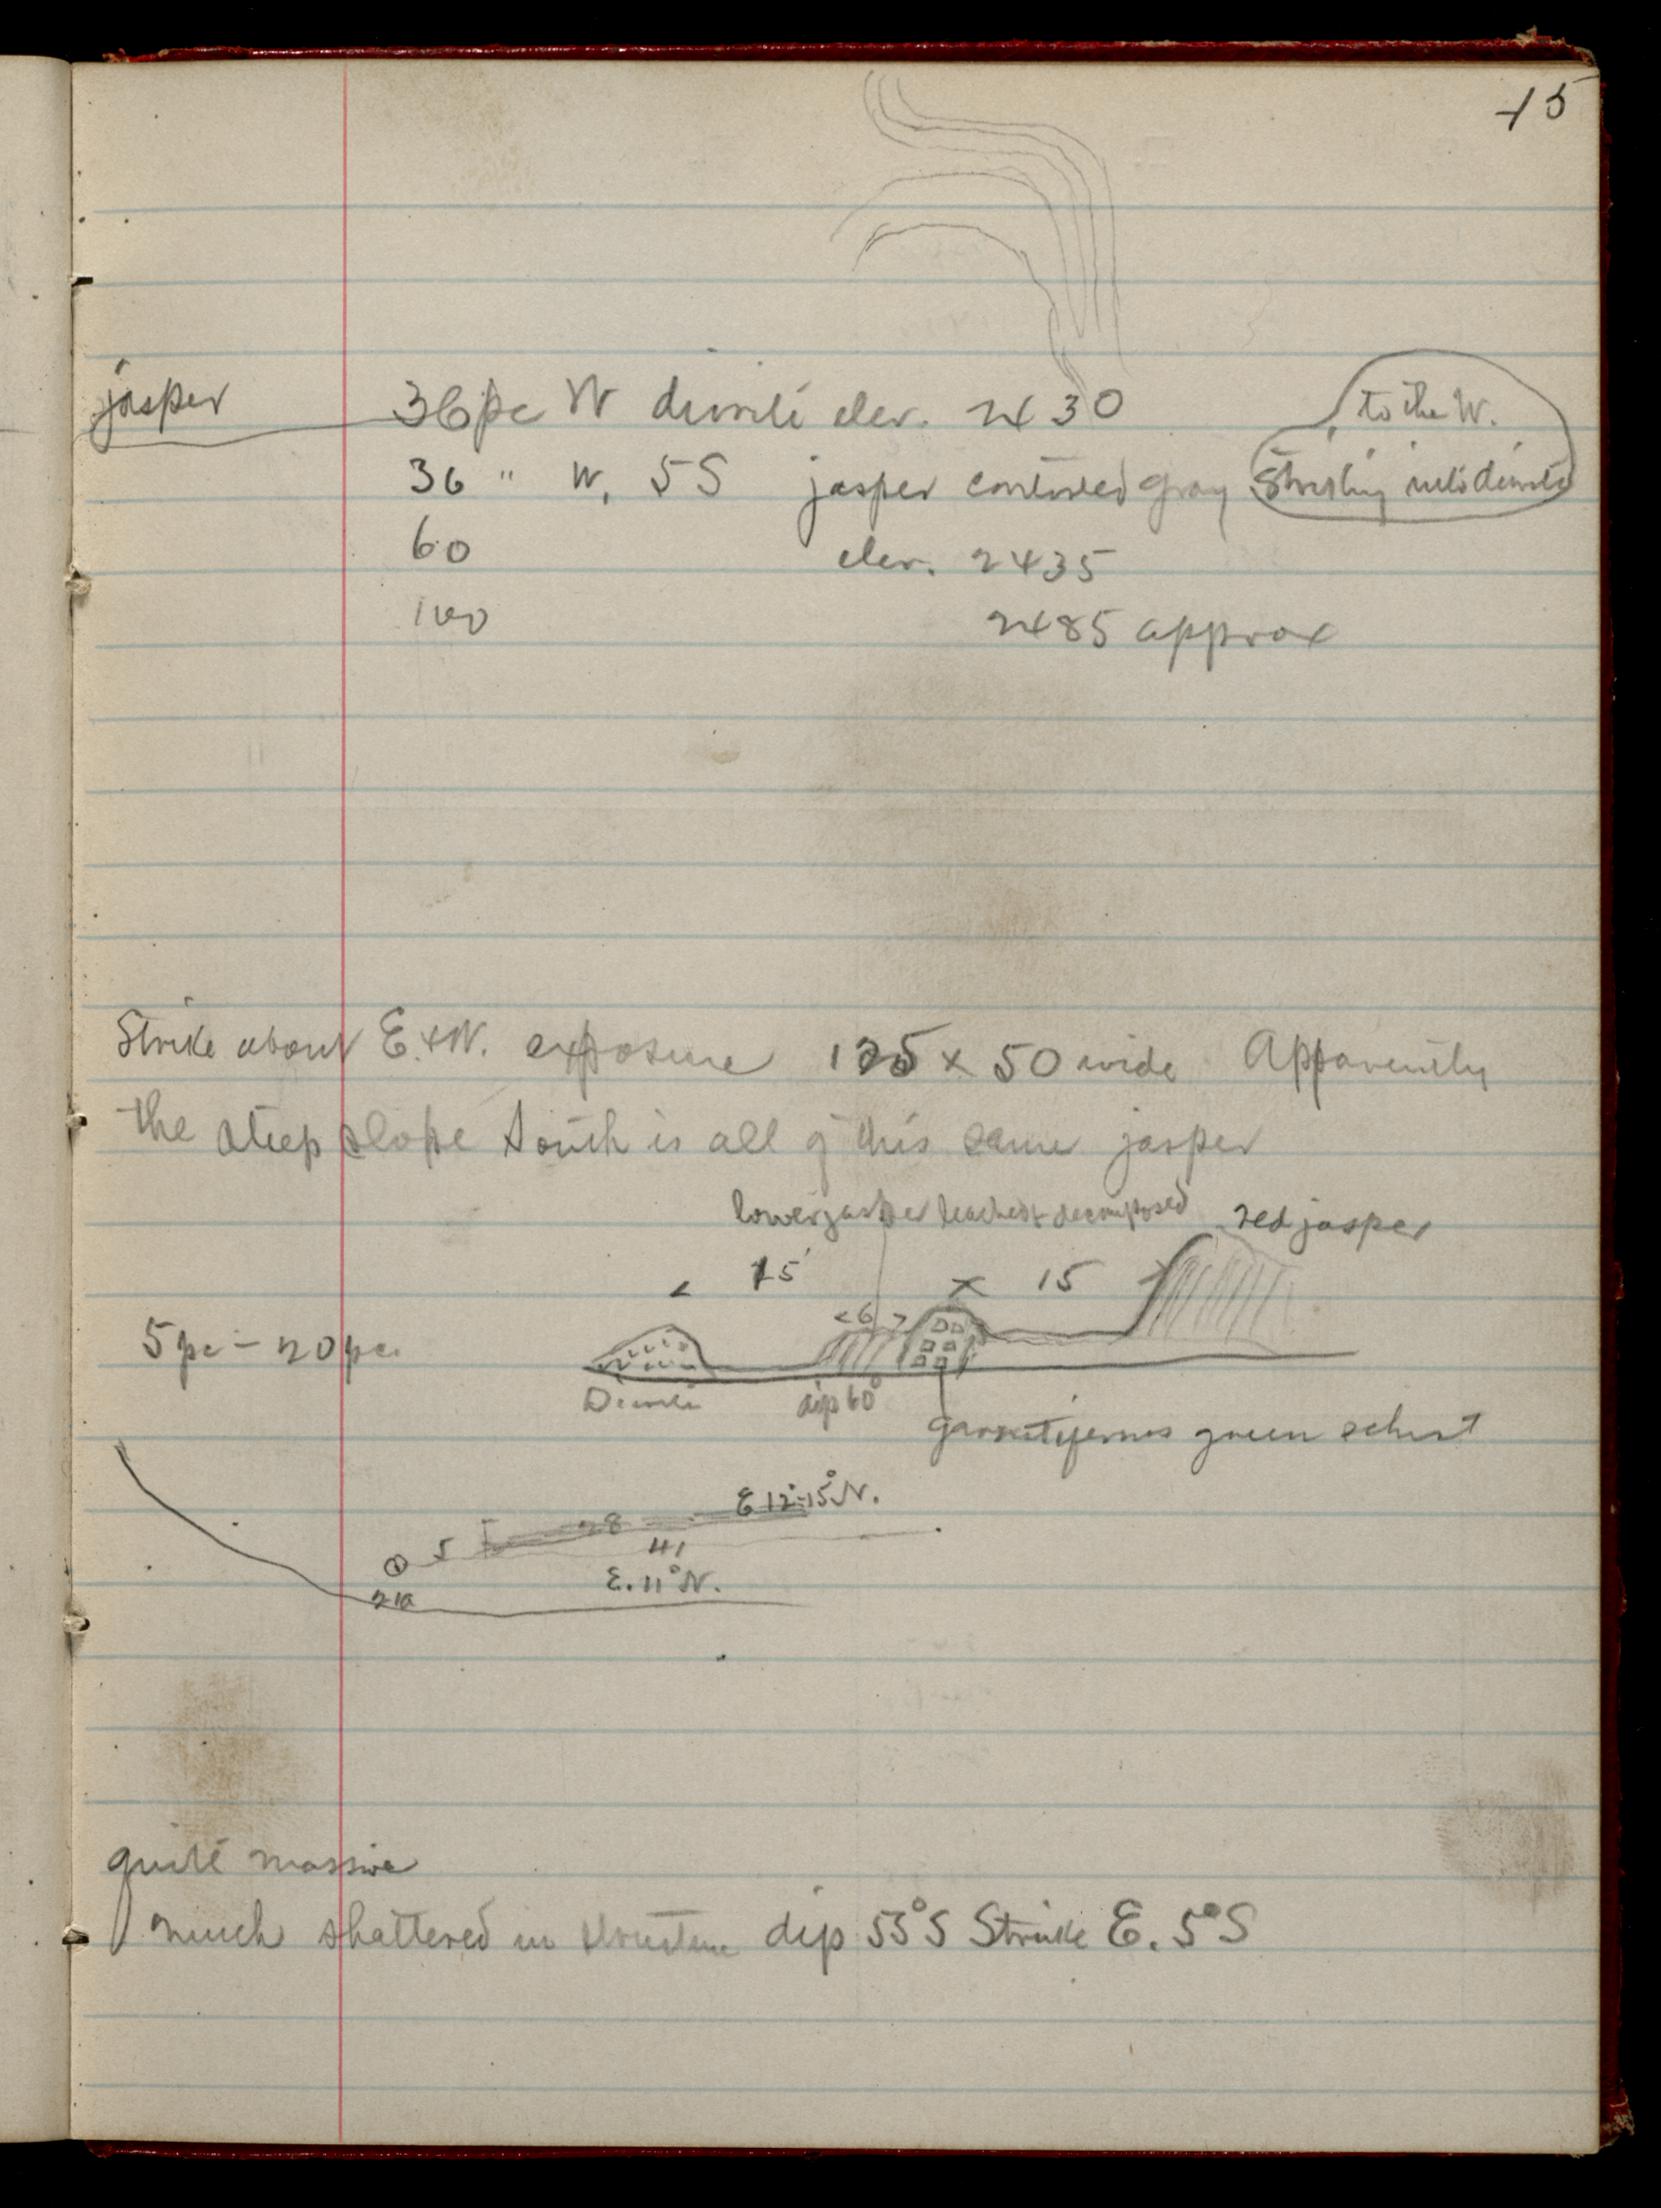 15
jasper 36 pc W diorite elev. 2430 to the W.
36 " W. 5 S jasper contorted gray Striking into diorite
60 elev. 2435
100 2485 approx
Strike about E. & W. exposure 125 x 50 wide Apparently
the steep slope South is all of this same jasper
lower jasper leached & decomposed red jasper
< 15 x 15
<6>
5 pc - 20 pc.
Diorite dip 60°
garnetiferous green schist
E 12°-15° N.
5 28
41
E. 11° N.
210
quite massive
much shattered in structure dip 55° S Strike E. 5° S